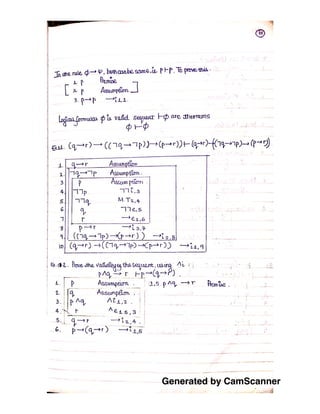 In one rule ϕ→ψ, both can be same. i.e. p⊢p. To prove this.
1. p Premise
2. p Assumption
3. p→p →i 1,2.
Logical formulas ϕ is valid sequent ⊢ϕ are theorems
ϕ⊢ϕ
(q→r)→((¬q→¬p)→(p→r))
1. q→r Assumption
2. ¬q→¬p Assumption.
3 p Assumption
4. ¬¬p ¬¬i,3
5. ¬¬q MT 2,4
6 q ¬¬e,5
7 r →e 1,6
8 p→r →i 3,7
9. ((¬q→¬p)→(p→r)) →i 2,8
10 (q→r)→((¬q→¬p)→(p→r)) →i 1,9
Prove the validity of the sequent, using ∧i
p∧q→r ⊢p→(q→r)
1. p Assumption. p∧q→r Premise.
2. q Assumption
3. p∧q ∧i 1,2.
4. r
5. q→r →i 2,4
6. p→(q→r) →i 1,5
Generated by CamScanner